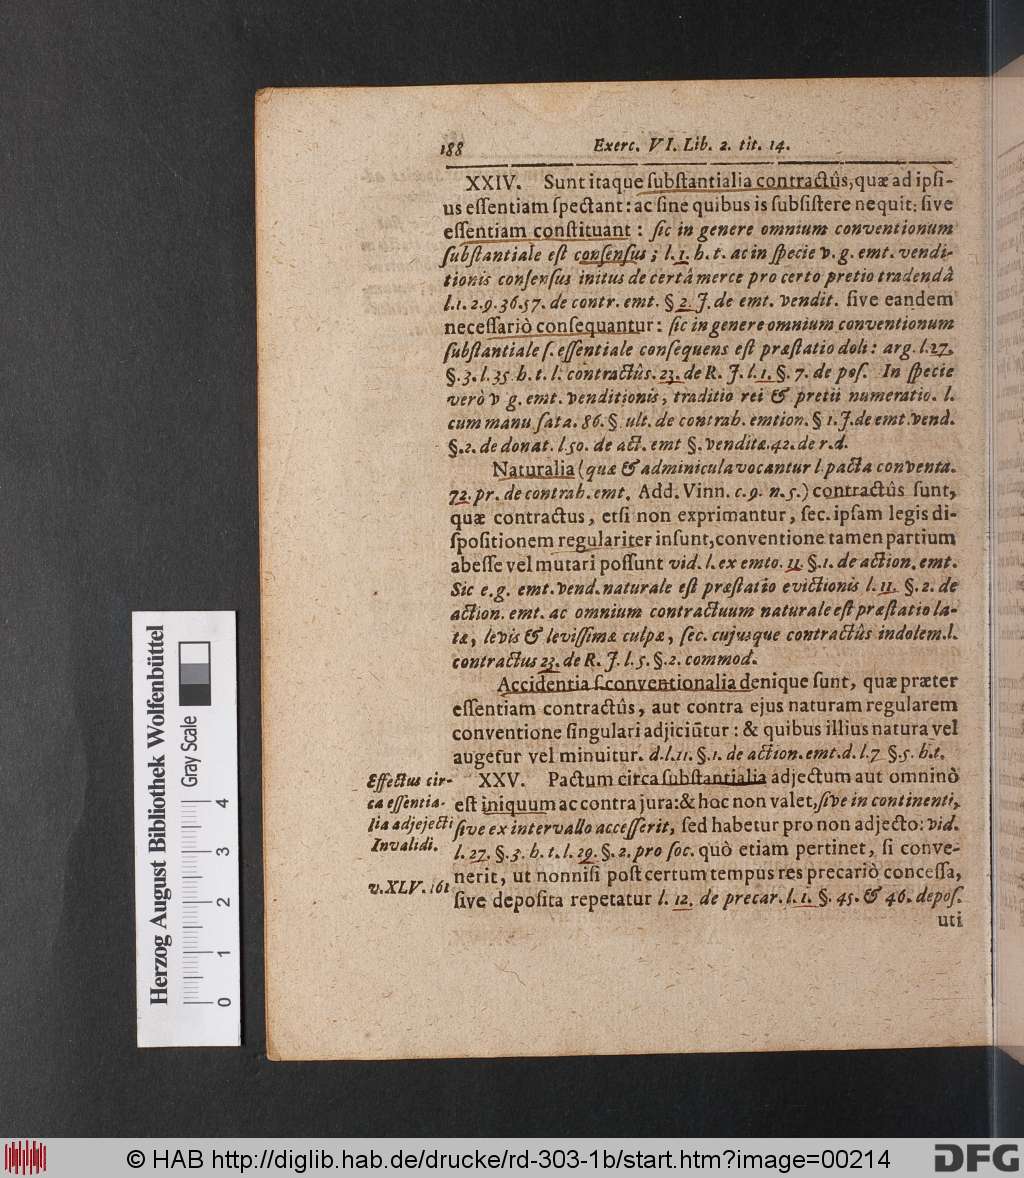 188 Exerc. VI. Lib. 2. tit. 14.
XXIV. Sunt itaque ſubſtantialia contractûs, quæ ad ipſi-
us eſſentiam ſpectant: ac ſine quibus is ſubſiſtere nequit; ſive
eſſentiam conſtituant: ſic in genere omnium conventionum
ſubſtantiale eſt conſenſus; l. 1. h. t. ac in ſpecie v. g. emt. vendi-
tionis conſenſus initus de certâ merce pro certo pretio tradendâ
l. 1. 2. 9. 36. 57. de contr. emt. § 2. J. de emt. vendit. ſive eandem
neceſſariò conſequantur: ſic in genere omnium conventionum
ſubſtantiale ſ. eſſentiale conſequens eſt præſtatio doli: arg. l. 27.
§. 3. l. 35 h. t. l. contractûs. 23. de R. J. l. 1. §. 7. de poſ. In ſpecie
verò v g. emt. venditionis, traditio rei & pretii numeratio. l.
cum manu ſata. 86. § ult. de contrah. emtion. § 1. J. de emt. vend.
§. 2. de donat. l 50. de act. emt §. vendita. 42. de r. d.
Naturalia (quæ & adminicula vocantur l. pacta conventa.
72. pr. de contrah. emt. Add. Vinn. c. 9. n. 5.) contractûs ſunt,
quæ contractus, etſi non exprimantur, ſec. ipſam legis di-
ſpoſitionem regulariter inſunt, conventione tamen partium
abeſſe vel mutari poſſunt vid. l. ex emto. 11. §. 1. de action. emt.
Sic e. g. emt. vend. naturale eſt præſtatio evictionis l. 11. §. 2. de
action. emt. ac omnium contractuum naturale eſt præſtatio la-
tæ, levis & leviſſimæ culpæ, ſec. cujusque contractûs indolem. l.
contractus 23. de R. J. l. 5. §. 2. commod.
Accidentia ſ. conventionalia denique ſunt, quæ præter
eſſentiam contractûs, aut contra ejus naturam regularem
conventione ſingulari adjiciūtur: & quibus illius natura vel
augetur vel minuitur. d. l. 11. §. 1. de action. emt. d. l. 7 §. 5. h. t.
Effectus cir-
ca eſſentia-
lia adjejecti
Invalidi.
v. XLV. 161
XXV. Pactum circa ſubſtantialia adjectum aut omninò
eſt iniquum ac contra jura: & hoc non valet, ſive in continenti,
ſive ex intervallo acceſſerit, ſed habetur pro non adjecto: vid.
l. 27. §. 3. h. t. l. 29. §. 2. pro ſoc. quò etiam pertinet, ſi conve-
nerit, ut nonniſi poſt certum tempus res precariò conceſſa,
ſive depoſita repetatur l. 12. de precar. l. 1. §. 45. & 46. depoſ.
uti
Herzog August Bibliothek Wolfenbüttel
Gray Scale
0 1 2 3 4
© HAB http://diglib.hab.de/drucke/rd-303-1b/start.htm?image=00214
DFG